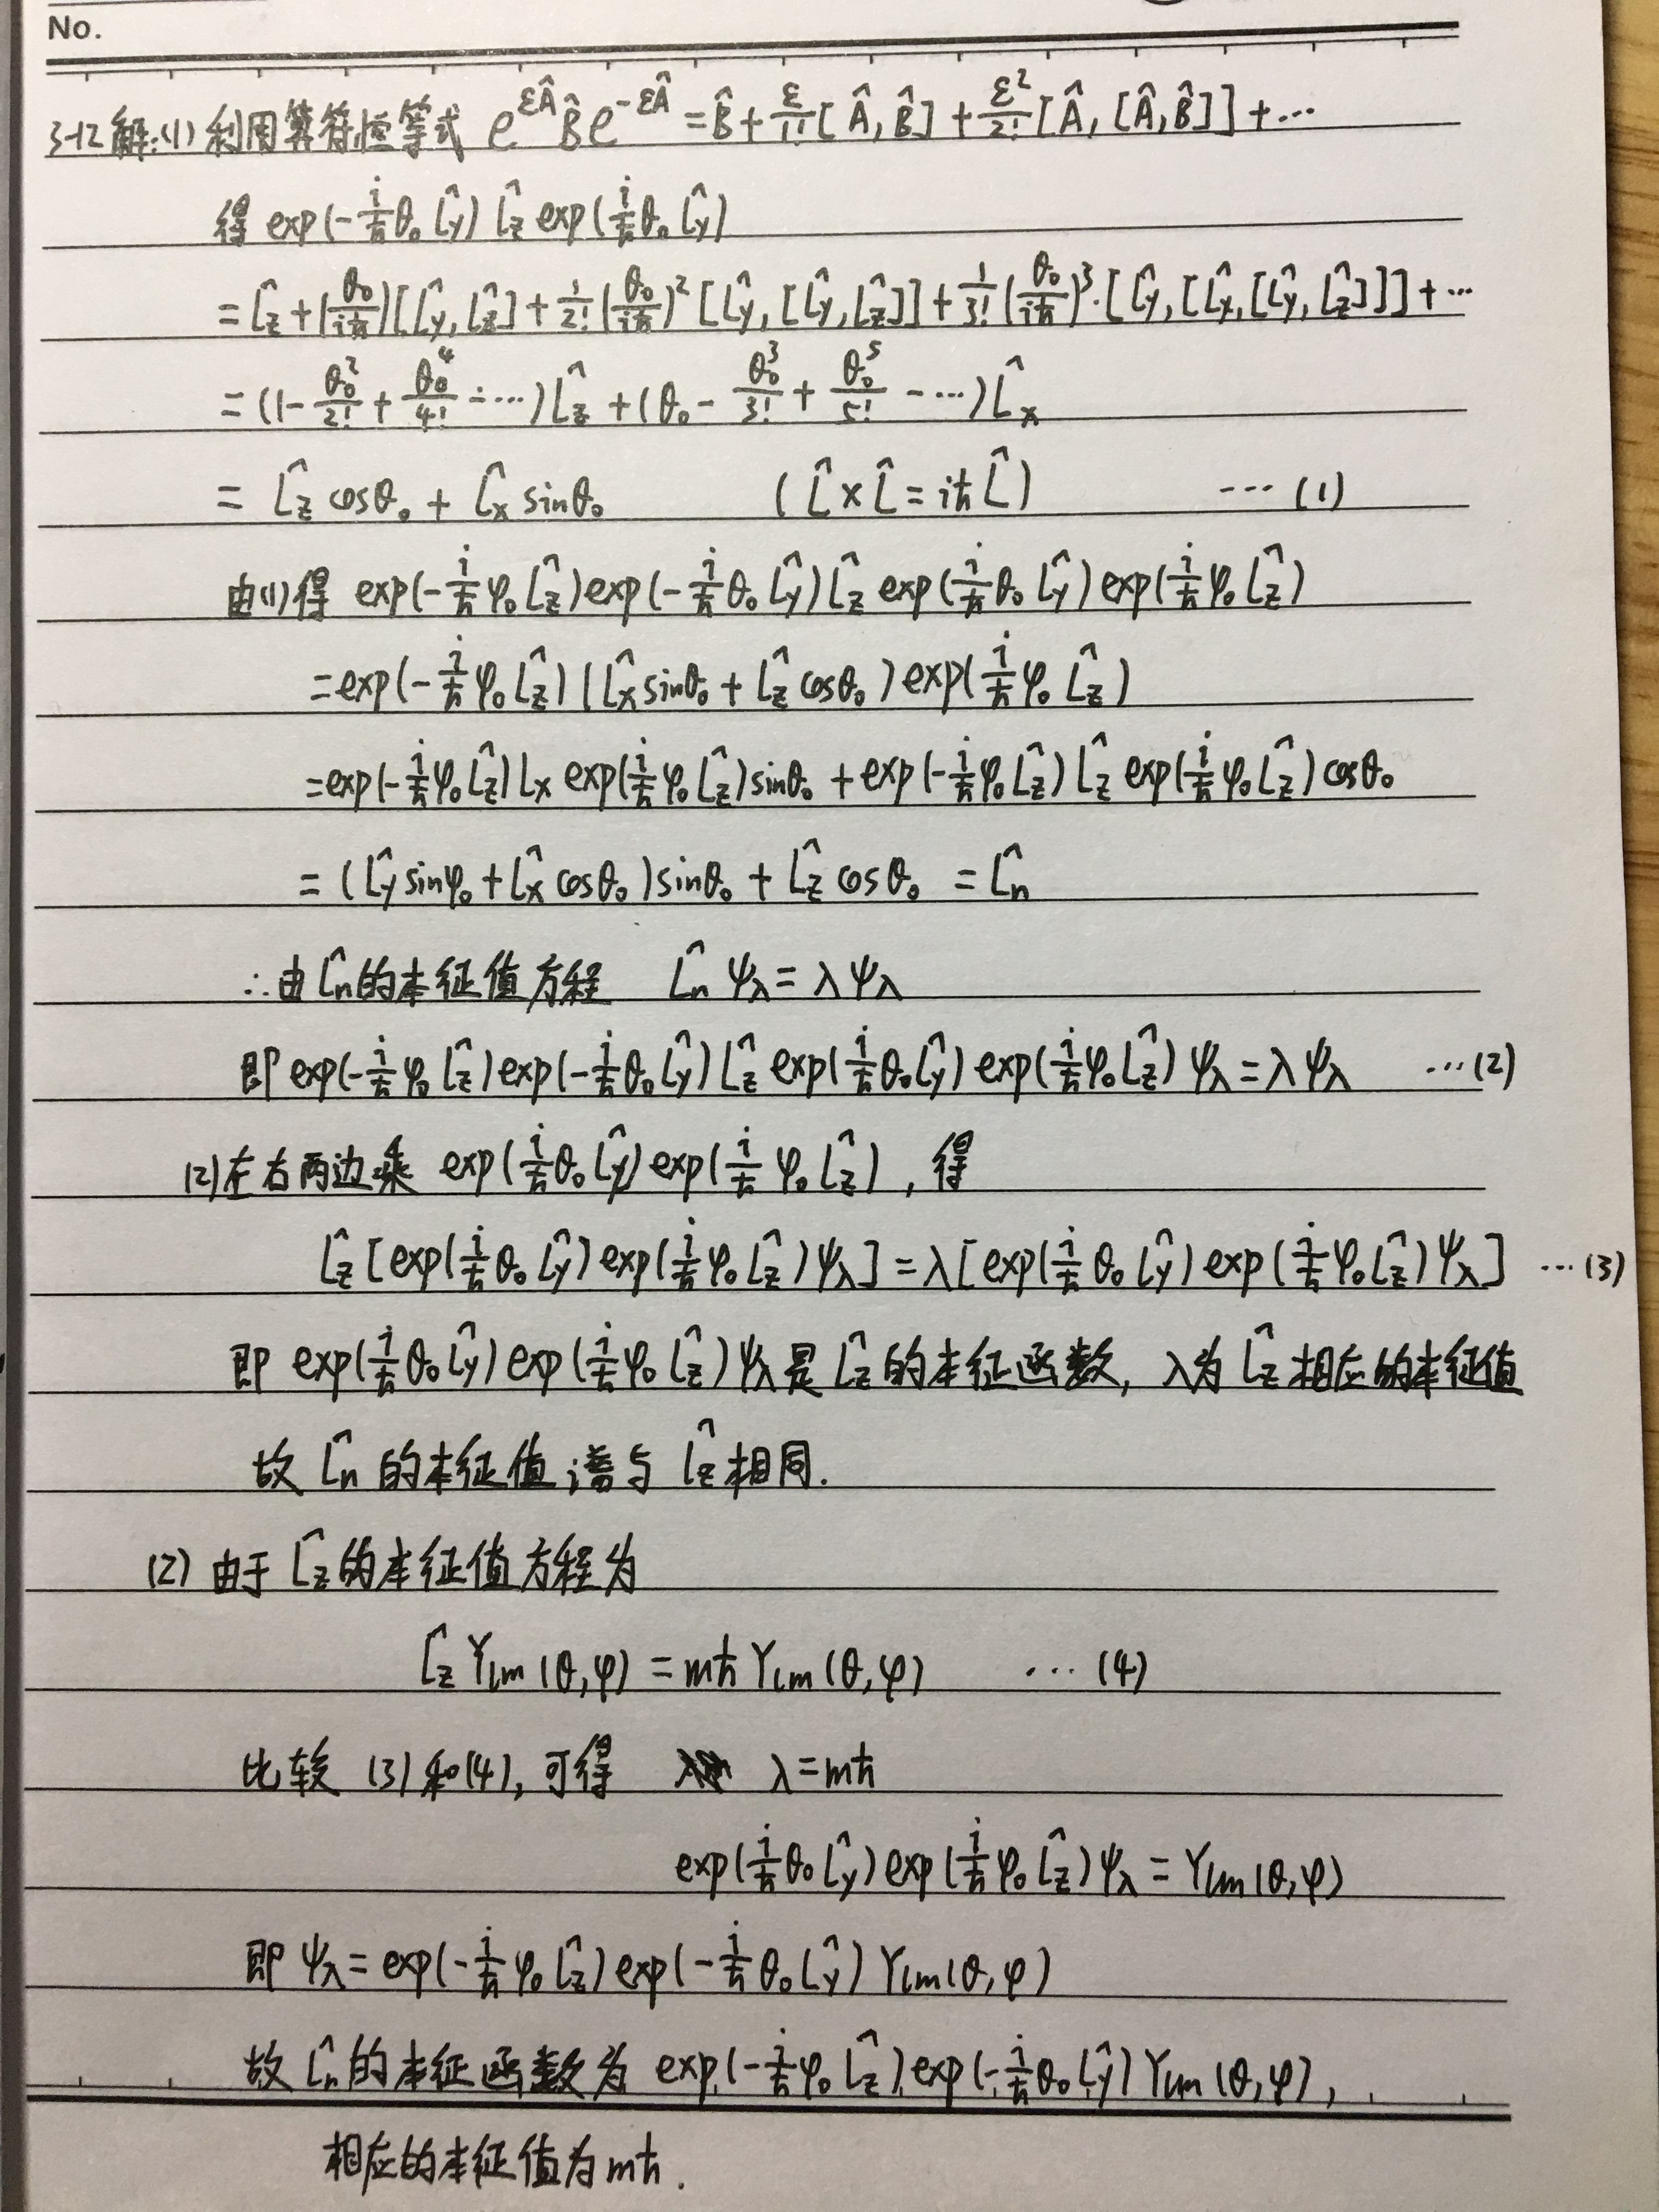 No.
3-12 解:(1) 利用算符恒等式 e^{εÂ} B̂ e^{-εÂ} = B̂ + ε/1! [Â, B̂] + ε²/2! [Â, [Â, B̂]] + ⋯
得 exp(-i/ħ θ₀ L̂y) L̂z exp(i/ħ θ₀ L̂y)
= L̂z + (θ₀/iħ)[L̂y, L̂z] + 1/2! (θ₀/iħ)² [L̂y, [L̂y, L̂z]] + 1/3! (θ₀/iħ)³·[L̂y, [L̂y, [L̂y, L̂z]]] + ⋯
= (1 - θ₀²/2! + θ₀⁴/4! - ⋯) L̂z + (θ₀ - θ₀³/3! + θ₀⁵/5! - ⋯) L̂x
= L̂z cosθ₀ + L̂x sinθ₀ (L̂ × L̂ = iħ L̂) ⋯ (1)
由(1)得 exp(-i/ħ φ₀ L̂z) exp(-i/ħ θ₀ L̂y) L̂z exp(i/ħ θ₀ L̂y) exp(i/ħ φ₀ L̂z)
= exp(-i/ħ φ₀ L̂z) (L̂x sinθ₀ + L̂z cosθ₀) exp(i/ħ φ₀ L̂z)
= exp(-i/ħ φ₀ L̂z) Lx exp(i/ħ φ₀ L̂z) sinθ₀ + exp(-i/ħ φ₀ L̂z) L̂z exp(i/ħ φ₀ L̂z) cosθ₀
= (L̂y sinφ₀ + L̂x cosθ₀) sinθ₀ + L̂z cosθ₀ = L̂n
∴ 由 L̂n 的本征值方程 L̂n ψλ = λ ψλ
即 exp(-i/ħ φ₀ L̂z) exp(-i/ħ θ₀ L̂y) L̂z exp(i/ħ θ₀ L̂y) exp(i/ħ φ₀ L̂z) ψλ = λ ψλ ⋯ (2)
(2)左右两边乘 exp(i/ħ θ₀ L̂y) exp(i/ħ φ₀ L̂z), 得
L̂z [exp(i/ħ θ₀ L̂y) exp(i/ħ φ₀ L̂z) ψλ] = λ [exp(i/ħ θ₀ L̂y) exp(i/ħ φ₀ L̂z) ψλ] ⋯ (3)
即 exp(i/ħ θ₀ L̂y) exp(i/ħ φ₀ L̂z) ψλ 是 L̂z 的本征函数, λ为 L̂z 相应的本征值
故 L̂n 的本征值谱与 L̂z 相同.
(2) 由于 L̂z 的本征值方程为
L̂z Ylm (θ, φ) = mħ Ylm (θ, φ) ⋯ (4)
比较 (3) 和(4), 可得 λ = mħ
exp(i/ħ θ₀ L̂y) exp(i/ħ φ₀ L̂z) ψλ = Ylm (θ, φ)
即 ψλ = exp(-i/ħ φ₀ L̂z) exp(-i/ħ θ₀ L̂y) Ylm (θ, φ)
故 L̂n 的本征函数为 exp(-i/ħ φ₀ L̂z) exp(-i/ħ θ₀ L̂y) Ylm (θ, φ),
相应的本征值为 mħ.